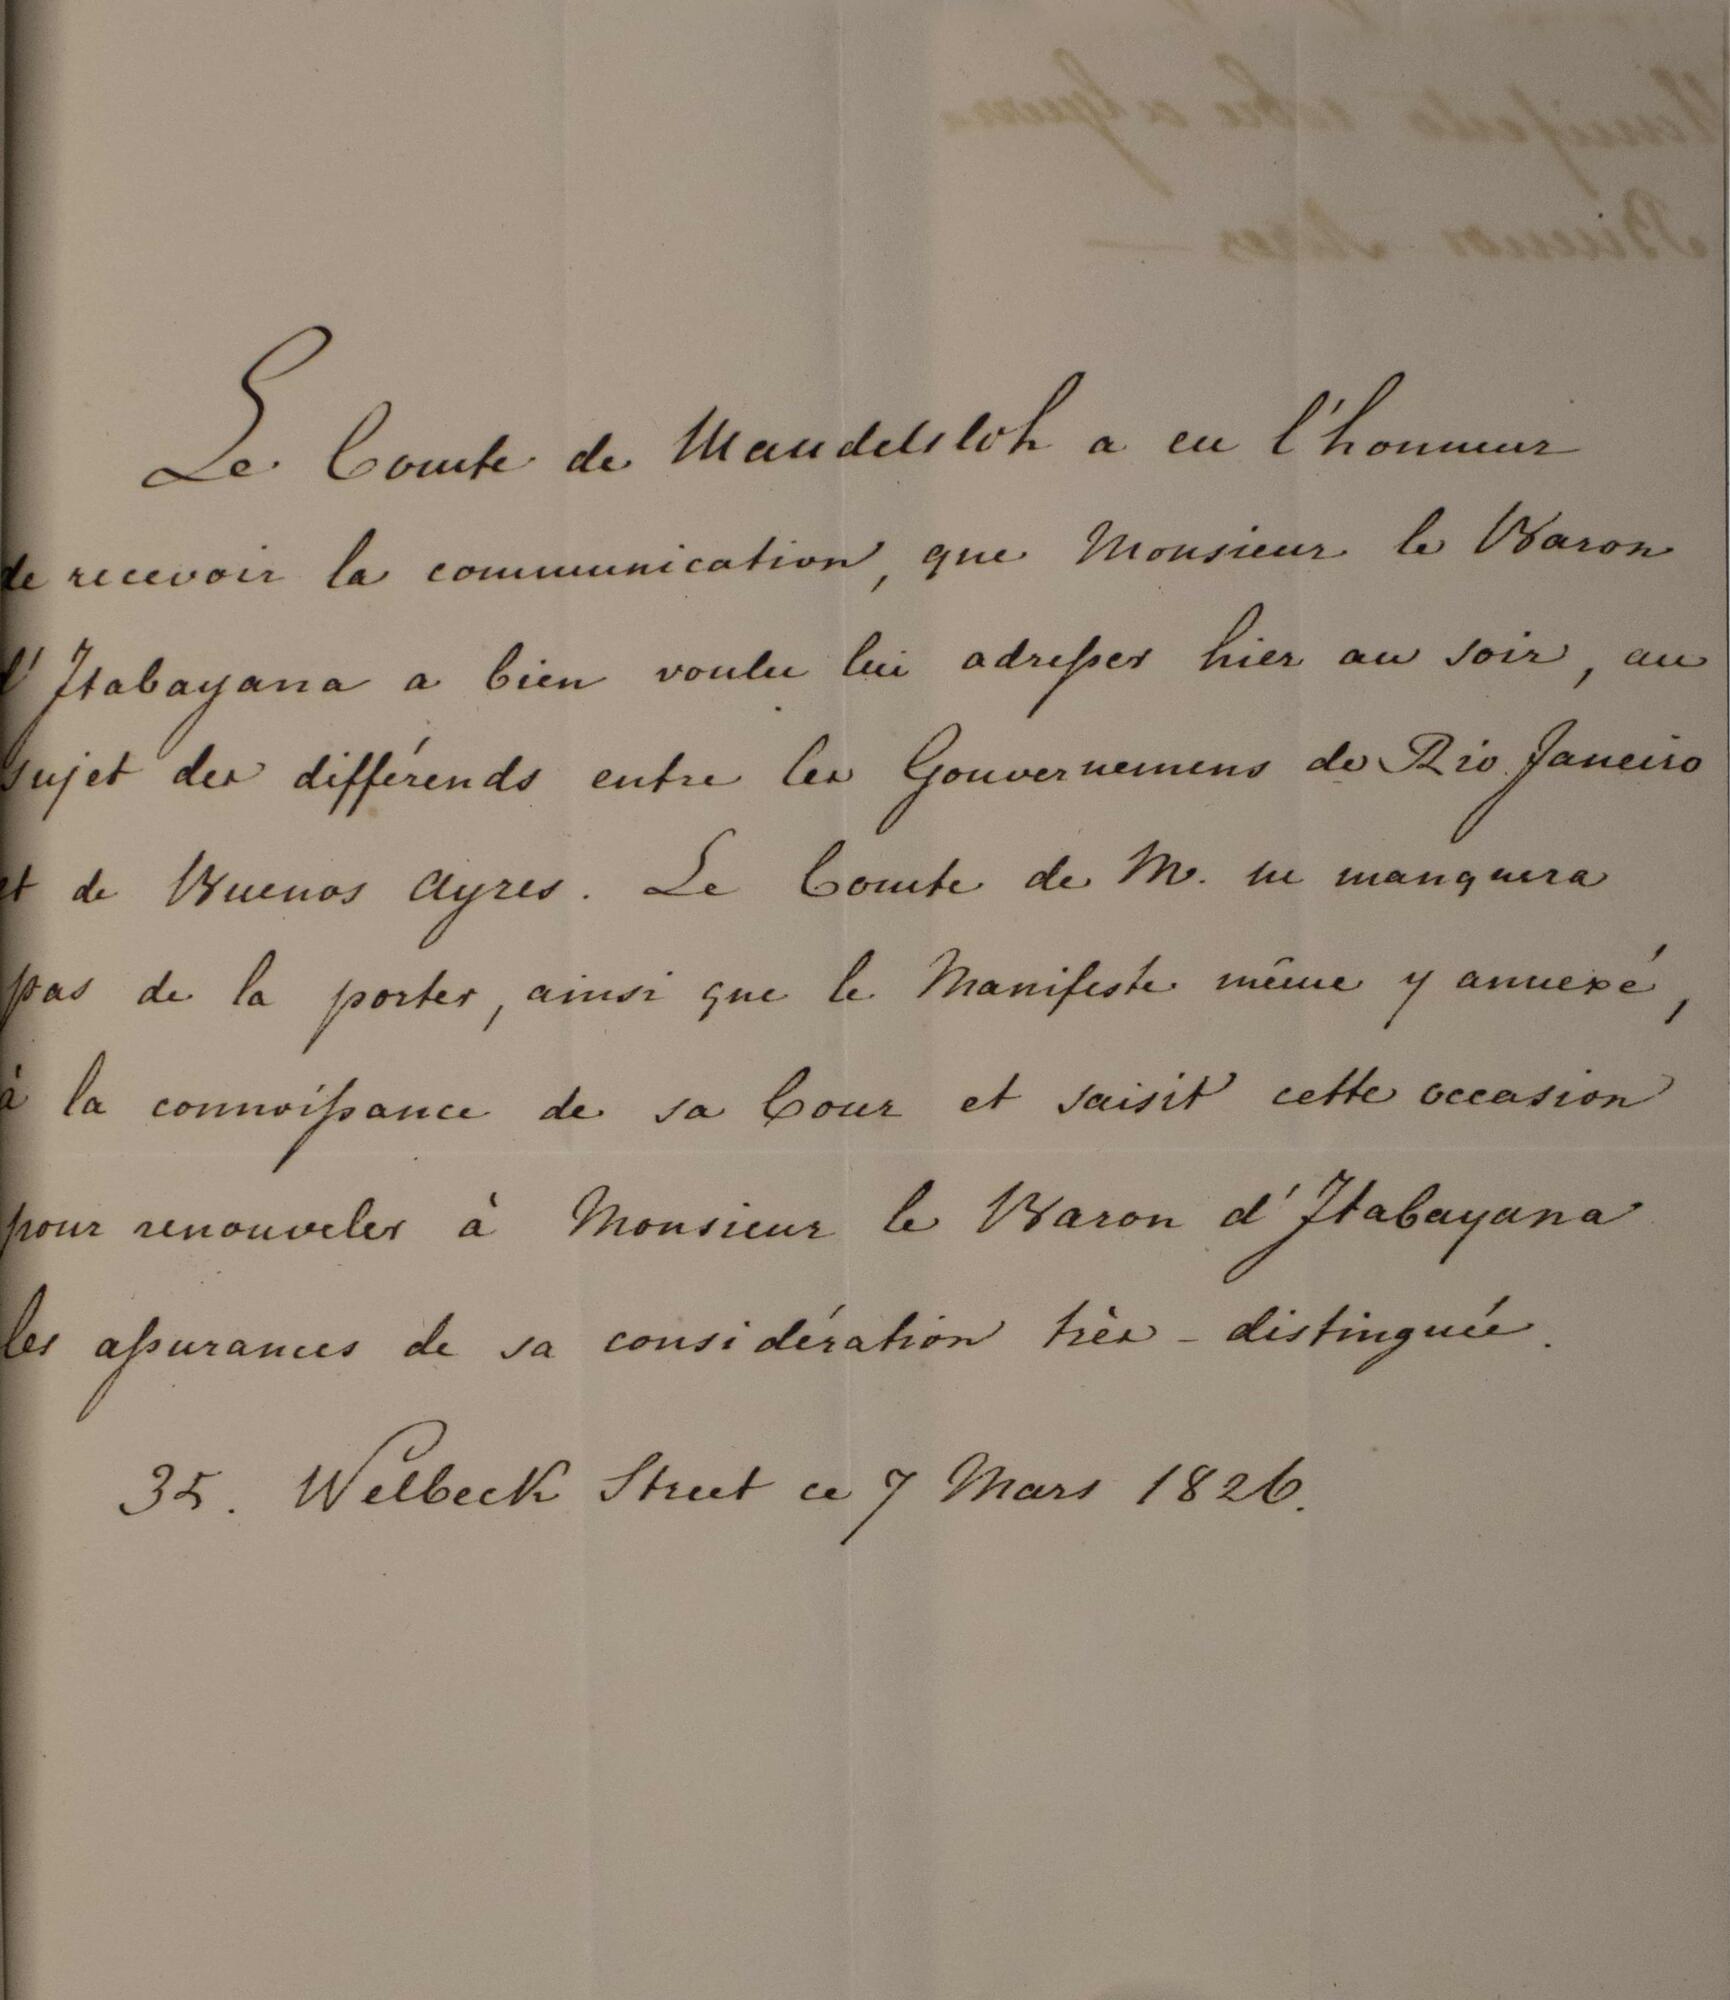 Le Comte de Mandelsloh a eu l'honneur
de recevoir la communication, que Monsieur le Baron
d'Itabayana a bien voulu lui adresser hier au soir, au
sujet des différends entre les Gouvernemens de Rio Janeiro
et de Buenos Ayres. Le Comte de M. ne manquera
pas de la porter, ainsi que le Manifeste même y annexé,
à la connoissance de sa Cour et saisit cette occasion
pour renouveler à Monsieur le Baron d'Itabayana
les assurances de sa considération très-distinguée.
35. Welbeck Street ce 7 Mars 1826.